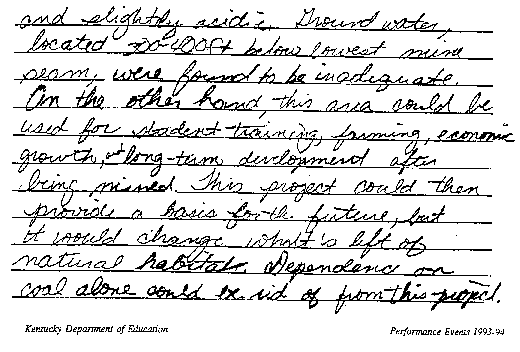 and slightly acidic. Ground water,
located 300-400ft below lowest mine
seam, were found to be inadequate.
On the other hand, this area could be
used for student training, farming, economic
growth, or long-term development after
being mined. This project could then
provide a basis for the future, but
it would change what's left of
natural habitats. Dependence on
coal alone could be rid of from this project.
Kentucky Department of Education
Performance Events 1993-94